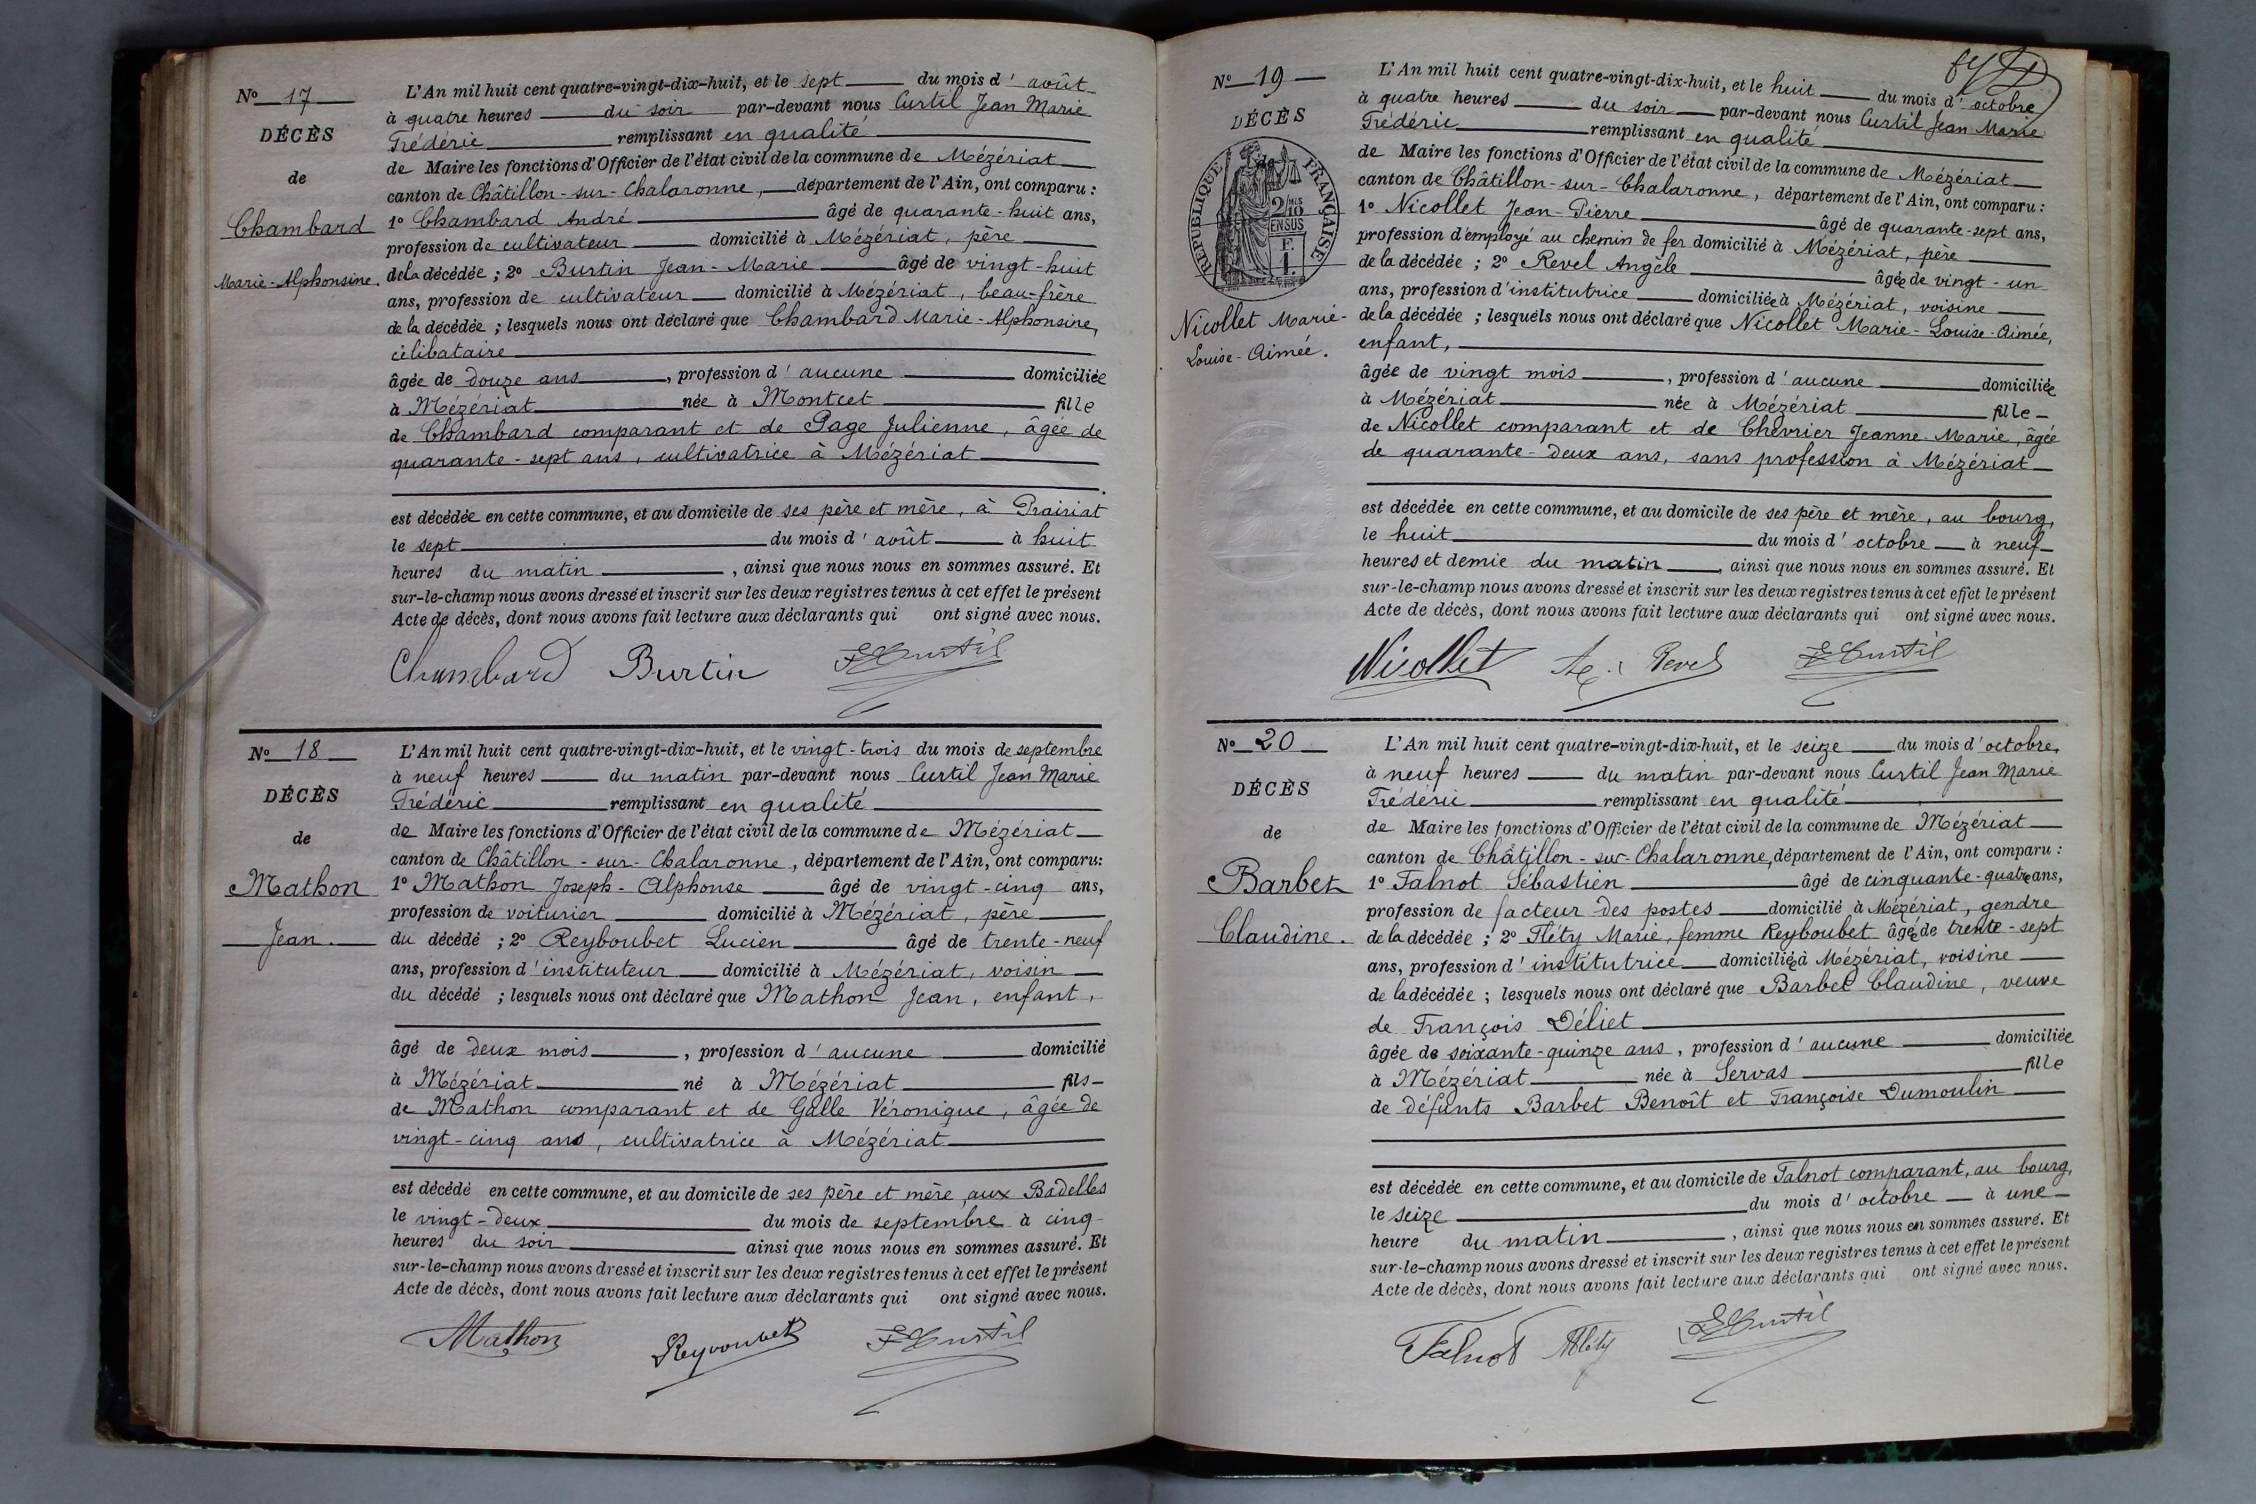 Nº 17
DÉCÈS
de
Chambard
Marie-Alphonsine.
L'An mil huit cent quatre-vingt-dix-huit, et le sept du mois d'août
à quatre heures du soir par-devant nous Curtil Jean Marie
Frédéric remplissant en qualité
de Maire les fonctions d'Officier de l'état civil de la commune de Mézériat
canton de Châtillon-sur-Chalaronne, département de l'Ain, ont comparu :
1º Chambard André âgé de quarante-huit ans,
profession de cultivateur domicilié à Mézériat, père
de la décédée ; 2º Burtin Jean-Marie âgé de vingt-huit
ans, profession de cultivateur domicilié à Mézériat, beau-frère
de la décédée ; lesquels nous ont déclaré que Chambard Marie-Alphonsine,
célibataire
âgée de douze ans, profession d'aucune domiciliée
à Mézériat née à Montcet fille
de Chambard comparant et de Page Julienne, âgée de
quarante-sept ans, cultivatrice à Mézériat
est décédée en cette commune, et au domicile de ses père et mère, à Prairiat
le sept du mois d'août à huit
heures du matin, ainsi que nous nous en sommes assuré. Et
sur-le-champ nous avons dressé et inscrit sur les deux registres tenus à cet effet le présent
Acte de décès, dont nous avons fait lecture aux déclarants qui ont signé avec nous.
Chambard Burtin F Curtil
Nº 18
DÉCÈS
de
Mathon
Jean.
L'An mil huit cent quatre-vingt-dix-huit, et le vingt-trois du mois de septembre
à neuf heures du matin par-devant nous Curtil Jean Marie
Frédéric remplissant en qualité
de Maire les fonctions d'Officier de l'état civil de la commune de Mézériat
canton de Châtillon-sur-Chalaronne, département de l'Ain, ont comparu:
1º Mathon Joseph-Alphonse âgé de vingt-cinq ans,
profession de voiturier domicilié à Mézériat, père
du décédé ; 2º Reyboubet Lucien âgé de trente-neuf
ans, profession d'instituteur domicilié à Mézériat, voisin
du décédé ; lesquels nous ont déclaré que Mathon Jean, enfant,
âgé de deux mois, profession d'aucune domicilié
à Mézériat né à Mézériat fils
de Mathon comparant et de Galle Véronique, âgée de
vingt-cinq ans, cultivatrice à Mézériat
est décédé en cette commune, et au domicile de ses père et mère, aux Badelles
le vingt-deux du mois de septembre à cinq
heures du soir ainsi que nous nous en sommes assuré. Et
sur-le-champ nous avons dressé et inscrit sur les deux registres tenus à cet effet le présent
Acte de décès, dont nous avons fait lecture aux déclarants qui ont signé avec nous.
Mathon Reyboubet F Curtil
Nº 19
DÉCÈS
de
RÉPUBLIQUE FRANÇAISE
2/10 EN SUS
F.
1.
Nicollet Marie-
Louise-Aimée.
L'An mil huit cent quatre-vingt-dix-huit, et le huit du mois d'octobre
à quatre heures du soir par-devant nous Curtil Jean Marie
Frédéric remplissant en qualité
de Maire les fonctions d'Officier de l'état civil de la commune de Mézériat
canton de Châtillon-sur-Chalaronne, département de l'Ain, ont comparu :
1º Nicollet Jean-Pierre âgé de quarante-sept ans,
profession d'employé au chemin de fer domicilié à Mézériat, père
de la décédée ; 2º Revel Angèle âgée de vingt-un
ans, profession d'institutrice domiciliée à Mézériat, voisine
de la décédée ; lesquels nous ont déclaré que Nicollet Marie-Louise-Aimée,
enfant,
âgée de vingt mois, profession d'aucune domiciliée
à Mézériat née à Mézériat fille
de Nicollet comparant et de Chevrier Jeanne-Marie, âgée
de quarante-deux ans, sans profession à Mézériat
est décédée en cette commune, et au domicile de ses père et mère, au bourg,
le huit du mois d'octobre à neuf
heures et demie du matin, ainsi que nous nous en sommes assuré. Et
sur-le-champ nous avons dressé et inscrit sur les deux registres tenus à cet effet le présent
Acte de décès, dont nous avons fait lecture aux déclarants qui ont signé avec nous.
Nicollet Revel F Curtil
Nº 20
DÉCÈS
de
Barbet
Claudine.
L'An mil huit cent quatre-vingt-dix-huit, et le seize du mois d'octobre,
à neuf heures du matin par-devant nous Curtil Jean Marie
Frédéric remplissant en qualité
de Maire les fonctions d'Officier de l'état civil de la commune de Mézériat
canton de Châtillon-sur-Chalaronne, département de l'Ain, ont comparu :
1º Falnot Sébastien âgé de cinquante-quatre ans,
profession de facteur des postes domicilié à Mézériat, gendre
de la décédée ; 2º Fléty Marie, femme Reyboubet âgée de trente-sept
ans, profession d'institutrice domiciliée à Mézériat, voisine
de la décédée ; lesquels nous ont déclaré que Barbet Claudine, veuve
de François Déliet
âgée de soixante-quinze ans, profession d'aucune domiciliée
à Mézériat née à Servas fille
de défunts Barbet Benoît et Françoise Dumoulin
est décédée en cette commune, et au domicile de Falnot comparant, au bourg,
le seize du mois d'octobre à une
heure du matin, ainsi que nous nous en sommes assuré. Et
sur-le-champ nous avons dressé et inscrit sur les deux registres tenus à cet effet le présent
Acte de décès, dont nous avons fait lecture aux déclarants qui ont signé avec nous.
Falnot MFléty F Curtil